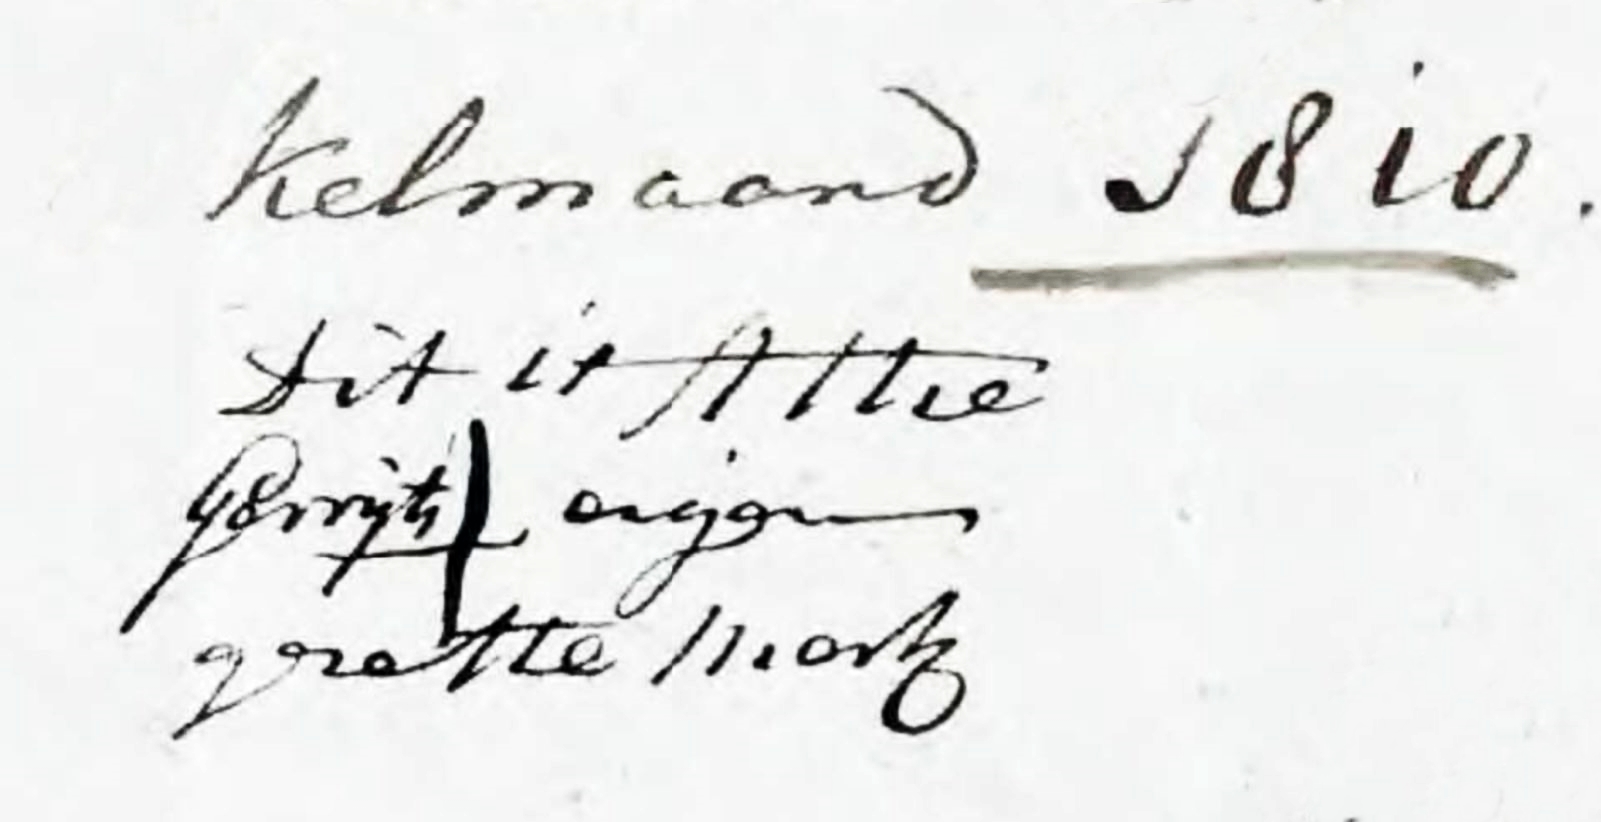 Kelmaand 1810.
Dit it Attie
Gerrijts eijgen
gresette Merk